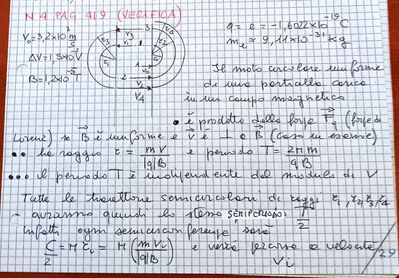 N 4 PAG 419 (VERIFICA)
V₀=3,2×10⁵ m/s
ΔV=1,5×10 V
B=1,2×10 T
q = e = -1,6022×10⁻¹⁹ C
mₑ ≃ 9,11×10⁻³¹ kg
V₃
3
2
1
V₄
Il moto circolare uniforme
di una particella carica
in un campo magnetico
• è prodotto dalla forza F (forza di
Lorenz) se B è uniforme e v è ⊥ a B (caso in esame)
•• ha raggio r = mV/|q|B e periodo T = 2πm/|q|B
••• il periodo T è indipendente dal modulo di V
Tutte le traiettorie semicircolari di raggi r₁, r₂, r₃, r₄
avranno quindi lo stesso SEMIPERIODO: T/2
Infatti ogni semicirconferenza sarà
C/2 = π rᵢ = π (mVᵢ/|q|B) e verrà percorsa a velocità
Vᵢ
/29